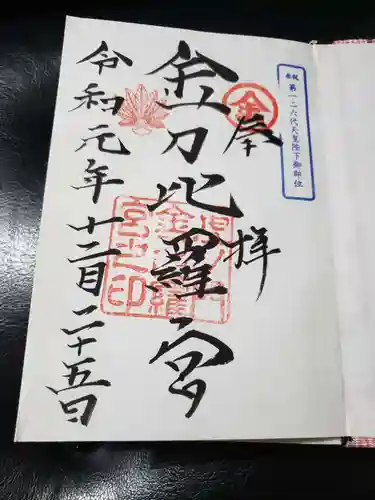 奉祝 第一二六代天皇陛下御即位
金
奉拝
金刀比羅宮
令和元年十二月二十五日